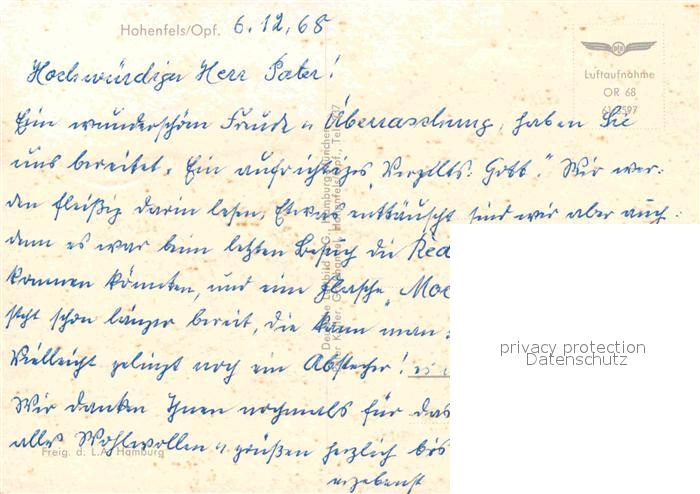 Hohenfels/Opf. 6.12.68
Luftaufnahme
OR 68
Hochwürdiger Herr Pater!
Eine wunderschöne Freude u. Überraschung, haben Sie
uns bereitet. Ein aufrichtiges „Vergelts Gott." Wir wer-
den fleißig darin lesen, Etwas enttäuscht sind wir aber auch:
denn es war beim letzten Besuch die Red
kommen könnten, und eine Flasche „Mo
steht schon länger bereit, die kann man
Vielleicht gelingt noch ein Abstecher!
Wir danken Ihnen nochmals für das
alles Wohlwollen u. grüßen herzlich bis
ergebenst
Freig. d. L.A. Hamburg
privacy protection
Datenschutz